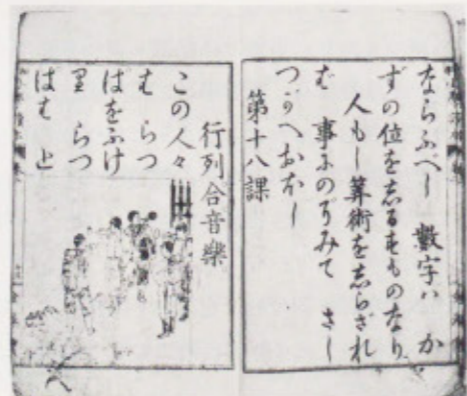 ならふべし 數字ハ か
ずの位を志るすものなり
人もし算術を志らざれ
ば 事にのぞみて さし
つかへおほし
第十八課
行列合音樂
この人々
は らつ
はをふけ
り らつ
はは と